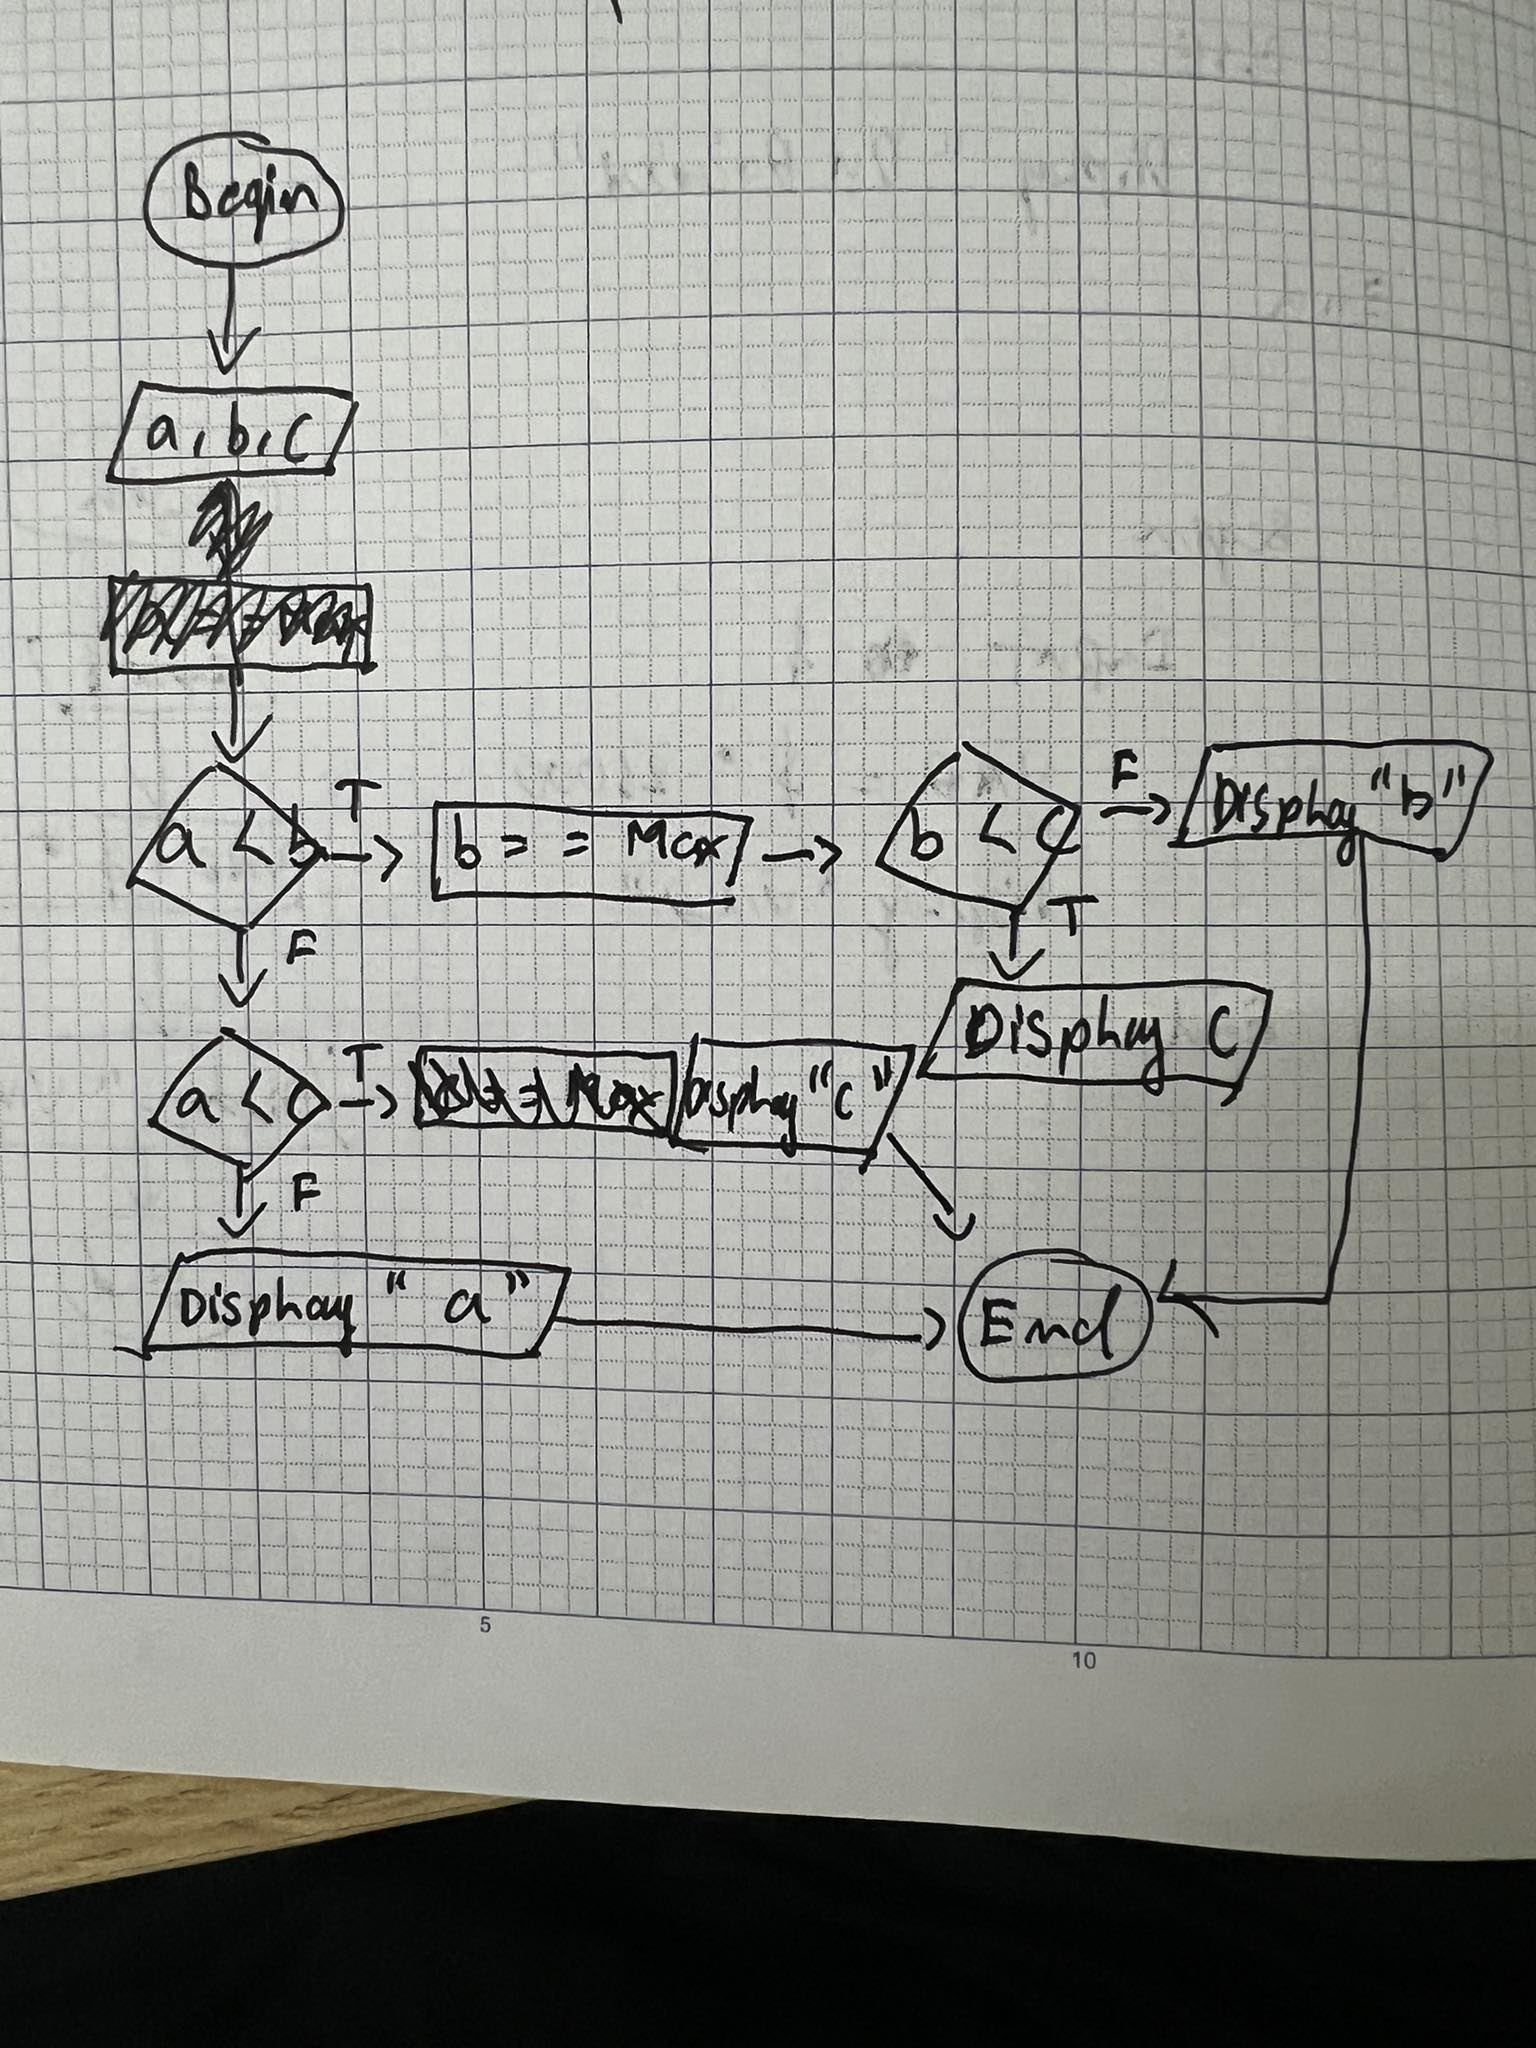 Begin
a, b, c
a < b
T
b = = Max
b < c
F
Display "b"
F
T
Display C
a < c
T
Display "c"
F
Display " a"
End
5
10